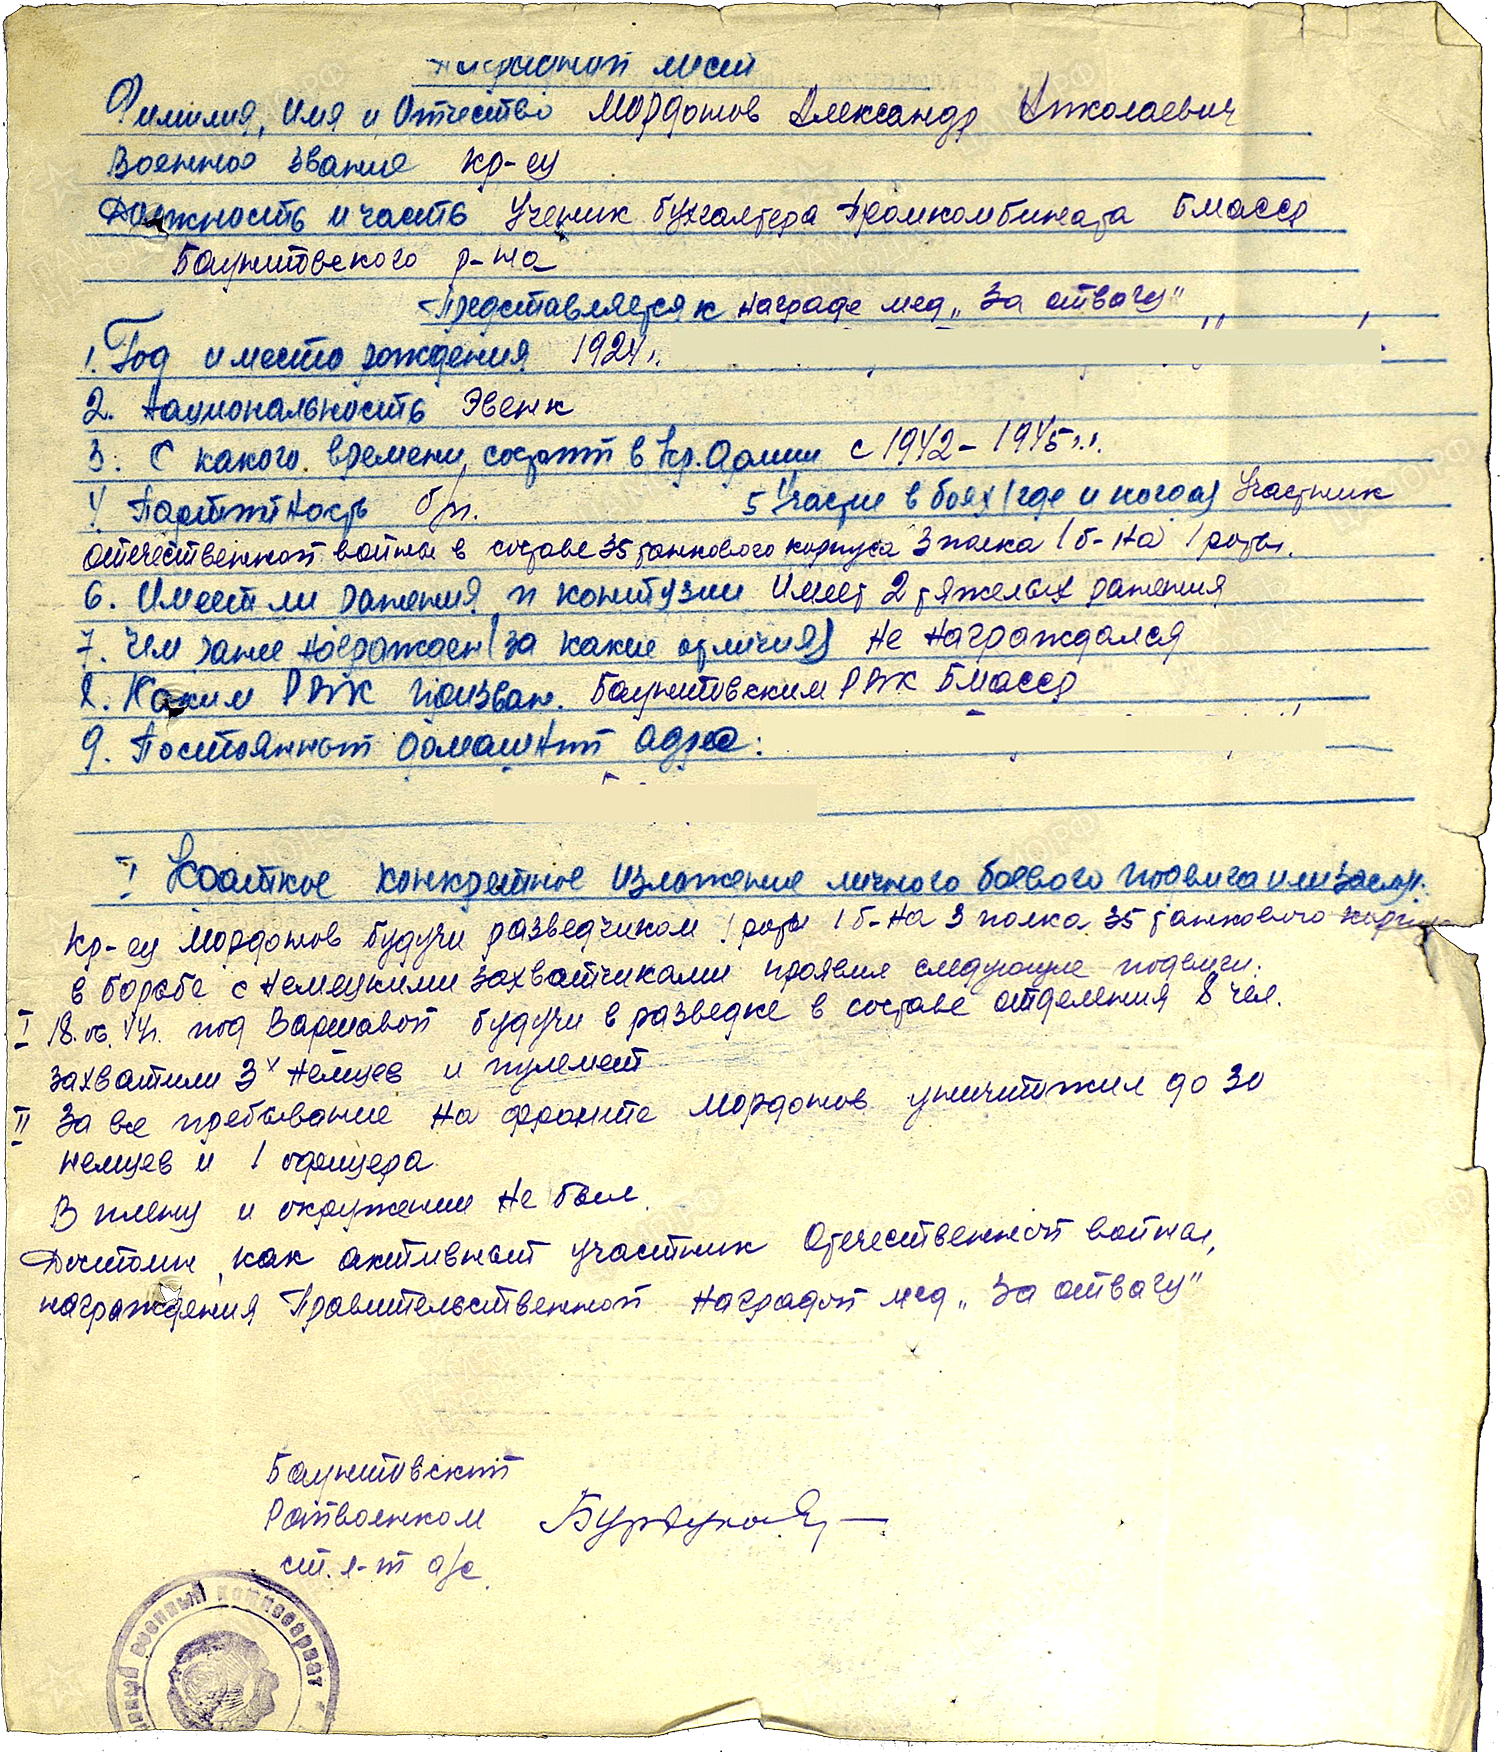 Наградной лист
Фамилия, Имя и Отчество Мордонов Александр Николаевич
Военное звание кр-ец
Должность и часть Ученик бухгалтера Промкомбината БМАССР
Баунтовского р-на
Представляется к награде мед. „За отвагу"
1. Год и место рождения 1924 г.
2. Национальность Эвенк
3. С какого времени состоит в Кр. Армии с 1942 - 1945 г.г.
4 Партийность б/п. 5 Участие в боях (где и когда) Участник
отечественной войны в составе 35 танкового корпуса 3 полка 1 б-на 1 роты.
6. Имеет ли ранения и контузии Имеет 2 тяжелых ранения
7. Чем ранее награжден (за какие отличия) Не награждался
8. Каким РВК призван. Баунтовским РВК БМАССР
9. Постоянный домашний адрес:
I Краткое конкретное изложение личного боевого подвига или заслуг.
Кр-ец Мордонов будучи разведчиком 1 роты 1 б-на 3 полка 35 танкового корпуса
в борьбе с немецкими захватчиками проявил следующие подвиги.
I 18.06.44г. под Варшавой будучи в разведке в составе отделения 8 чел.
захватили 3х немцев и пулемет
II За все пребывание на фронте Мордонов уничтожил до 30
немцев и 1 офицера
В плену и окружении не был.
Достоин, как активный участник Отечественной войны,
награждения Правительственной наградой мед. „За отвагу"
Баунтовский
Райвоенком
ст. л-т а/с
военный комиссариат